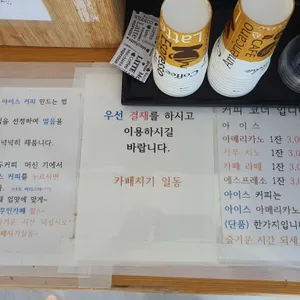 Latte
Espresso
Latte
Coffee
Americano
아이스 커피 만드는 법
을 선정하여 얼음을
넉넉히 채웁니다.
커피 머신 기에서
스 커피를 누르시면
입맛에 맞게
무인카페
즐거운 시간 되십시오~
카페지기일동~
우선 결제를 하시고
이용하시길
바랍니다.
카페지기 일동
커피 코너 입니다.
아 이 스
아메리카노 1잔 3,0
카푸치노 1잔 3,
카페 라떼 1잔 3,
에스프레소 1잔 3,0
아이스 커피는
아이스 아메리카노
(단품) 한가지입니
즐거운 시간 되세